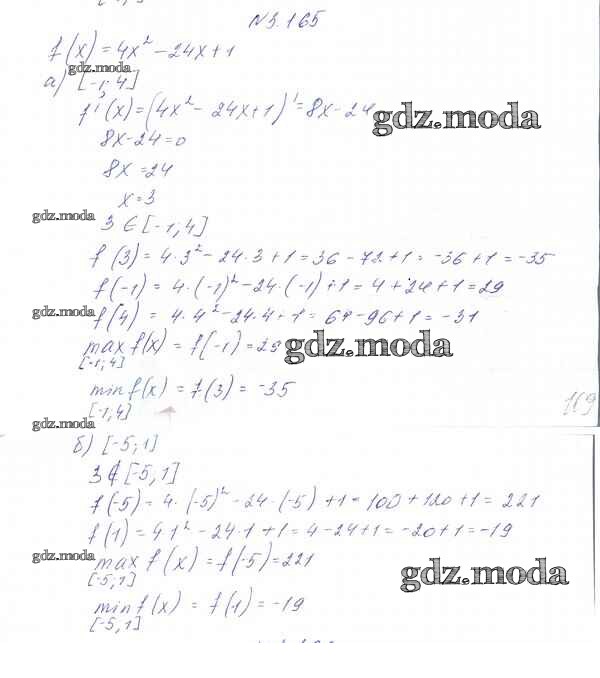 №3.165
f(x) = 4x² - 24x + 1
gdz.moda
а) [-1; 4]
f'(x) = (4x² - 24x + 1)' = 8x - 24
gdz.moda
8x - 24 = 0
8x = 24
x = 3
gdz.moda
3 ∈ [-1; 4]
f(3) = 4·3² - 24·3 + 1 = 36 - 72 + 1 = -36 + 1 = -35
f(-1) = 4·(-1)² - 24·(-1) + 1 = 4 + 24 + 1 = 29
gdz.moda
f(4) = 4·4² - 24·4 + 1 = 64 - 96 + 1 = -31
max f(x) = f(-1) = 29
[-1; 4]
gdz.moda
min f(x) = f(3) = -35
[-1; 4]
169
gdz.moda
б) [-5; 1]
3 ∉ [-5; 1]
f(-5) = 4·(-5)² - 24·(-5) + 1 = 100 + 120 + 1 = 221
f(1) = 4·1² - 24·1 + 1 = 4 - 24 + 1 = -20 + 1 = -19
gdz.moda
max f(x) = f(-5) = 221
[-5; 1]
gdz.moda
min f(x) = f(1) = -19
[-5; 1]